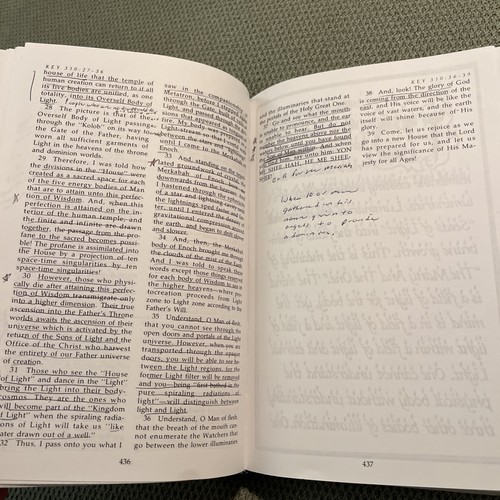 KEY 310:27-36
house of life that the temple of
human creation can return to if all
its five bodies are unified, as one
totality, into its Overself Body of
Light.
28 The picture is that of the
Overself Body of Light passing
through the "Kolob" on its way to
the Gate of the Father, having
worn all sufficient garments of
Light in the heavens of the throne
and dominion worlds.
29 Therefore, I was told how
the divisions in the "House" were
created as a sacred space for each
of the five energy bodies of Man
that are to attain unto this perfec-
tion of Wisdom. And, when this
perfection is attained on the in-
terior of the human temple, and
the finite and infinite are drawn
together, the passage from the pro-
fane to the sacred becomes possi-
ble! The profane is assimilated into
the House by a projection of ten
space-time singularities by ten
space-time singularities!
30 However, those who physi-
cally die after attaining this perfec-
tion of Wisdom transmigrate only
into a higher dimension. Their true
ascension into the Father's Throne
worlds awaits the ascension of their
universe which is activated by the
return of the Sons of Light and the
Office of the Christ who harvest
the entirety of our Father universe
of creation.
31 Those who see the "House
of Light" and dance in the "Light"
bring the Light into their body-
cosmos. They are the ones who
will become part of the "Kingdom
of Light" when the spiraling radia-
tions of Light will take us "like
water drawn out of a well."
32 Thus, I pass onto you what I
saw in the companionship of
Metatron, before I
through the Gate of
from the
fire. My body was
Light stream
between the stars and
until I came
Metatron.
33 And, standing on the
pyramid
Merkabah
downwards from the
like a star and lightning
I hastened through the
the lightnings sped faster and
until I reached the
gravitational compression around
the earth, and began to
and slower.
34 And, then, the Merkabah
body of Enoch brought me through
the clouds of the mist of the Earth.
And I was told to speak
words except those things reserved
for each body of Wisdom to use in
the higher heavens—where pro-
creation proceeds from Light
zone to Light zone according to the
Father's Will.
35 Understand, O Man of flesh,
that you cannot see through the
open doors and portals of the Light
universe. However, when you are
transported through the opaque
doors, you will be able to see be-
tween the Light regions, for the
former Light filter will be removed
and you—being "first bathed in the
pure spiraling radiations of
light"—will distinguish between
light and Light.
36 Understand, O Man of flesh,
that the breath of the mouth can-
not enumerate the Watchers that
go between the lower illuminaries
436
KEY 310:36-39
and the illuminaries that stand at
the
of the Holy Great One.
37 Go and see what the mouth
is unable to pronounce, and the ear
unable to hear. But do not
neither the heavens above nor the
until you have found
him, art unto him: YON
MI SHEE HAI, HI ME SHEE.
Call for our Merkabah
When 10 of
gathered in his
name given to
angels to
38 And, look! The glory of God
is coming from the direction of the
east, and His voice will be like the
voice of vast waters, and the earth
itself will shine because of His
glory.
39 Come, let us rejoice as we
go into a new House that the Lord
has prepared for us, and let us
view the significance of His Ma-
jesty for all Ages!
437